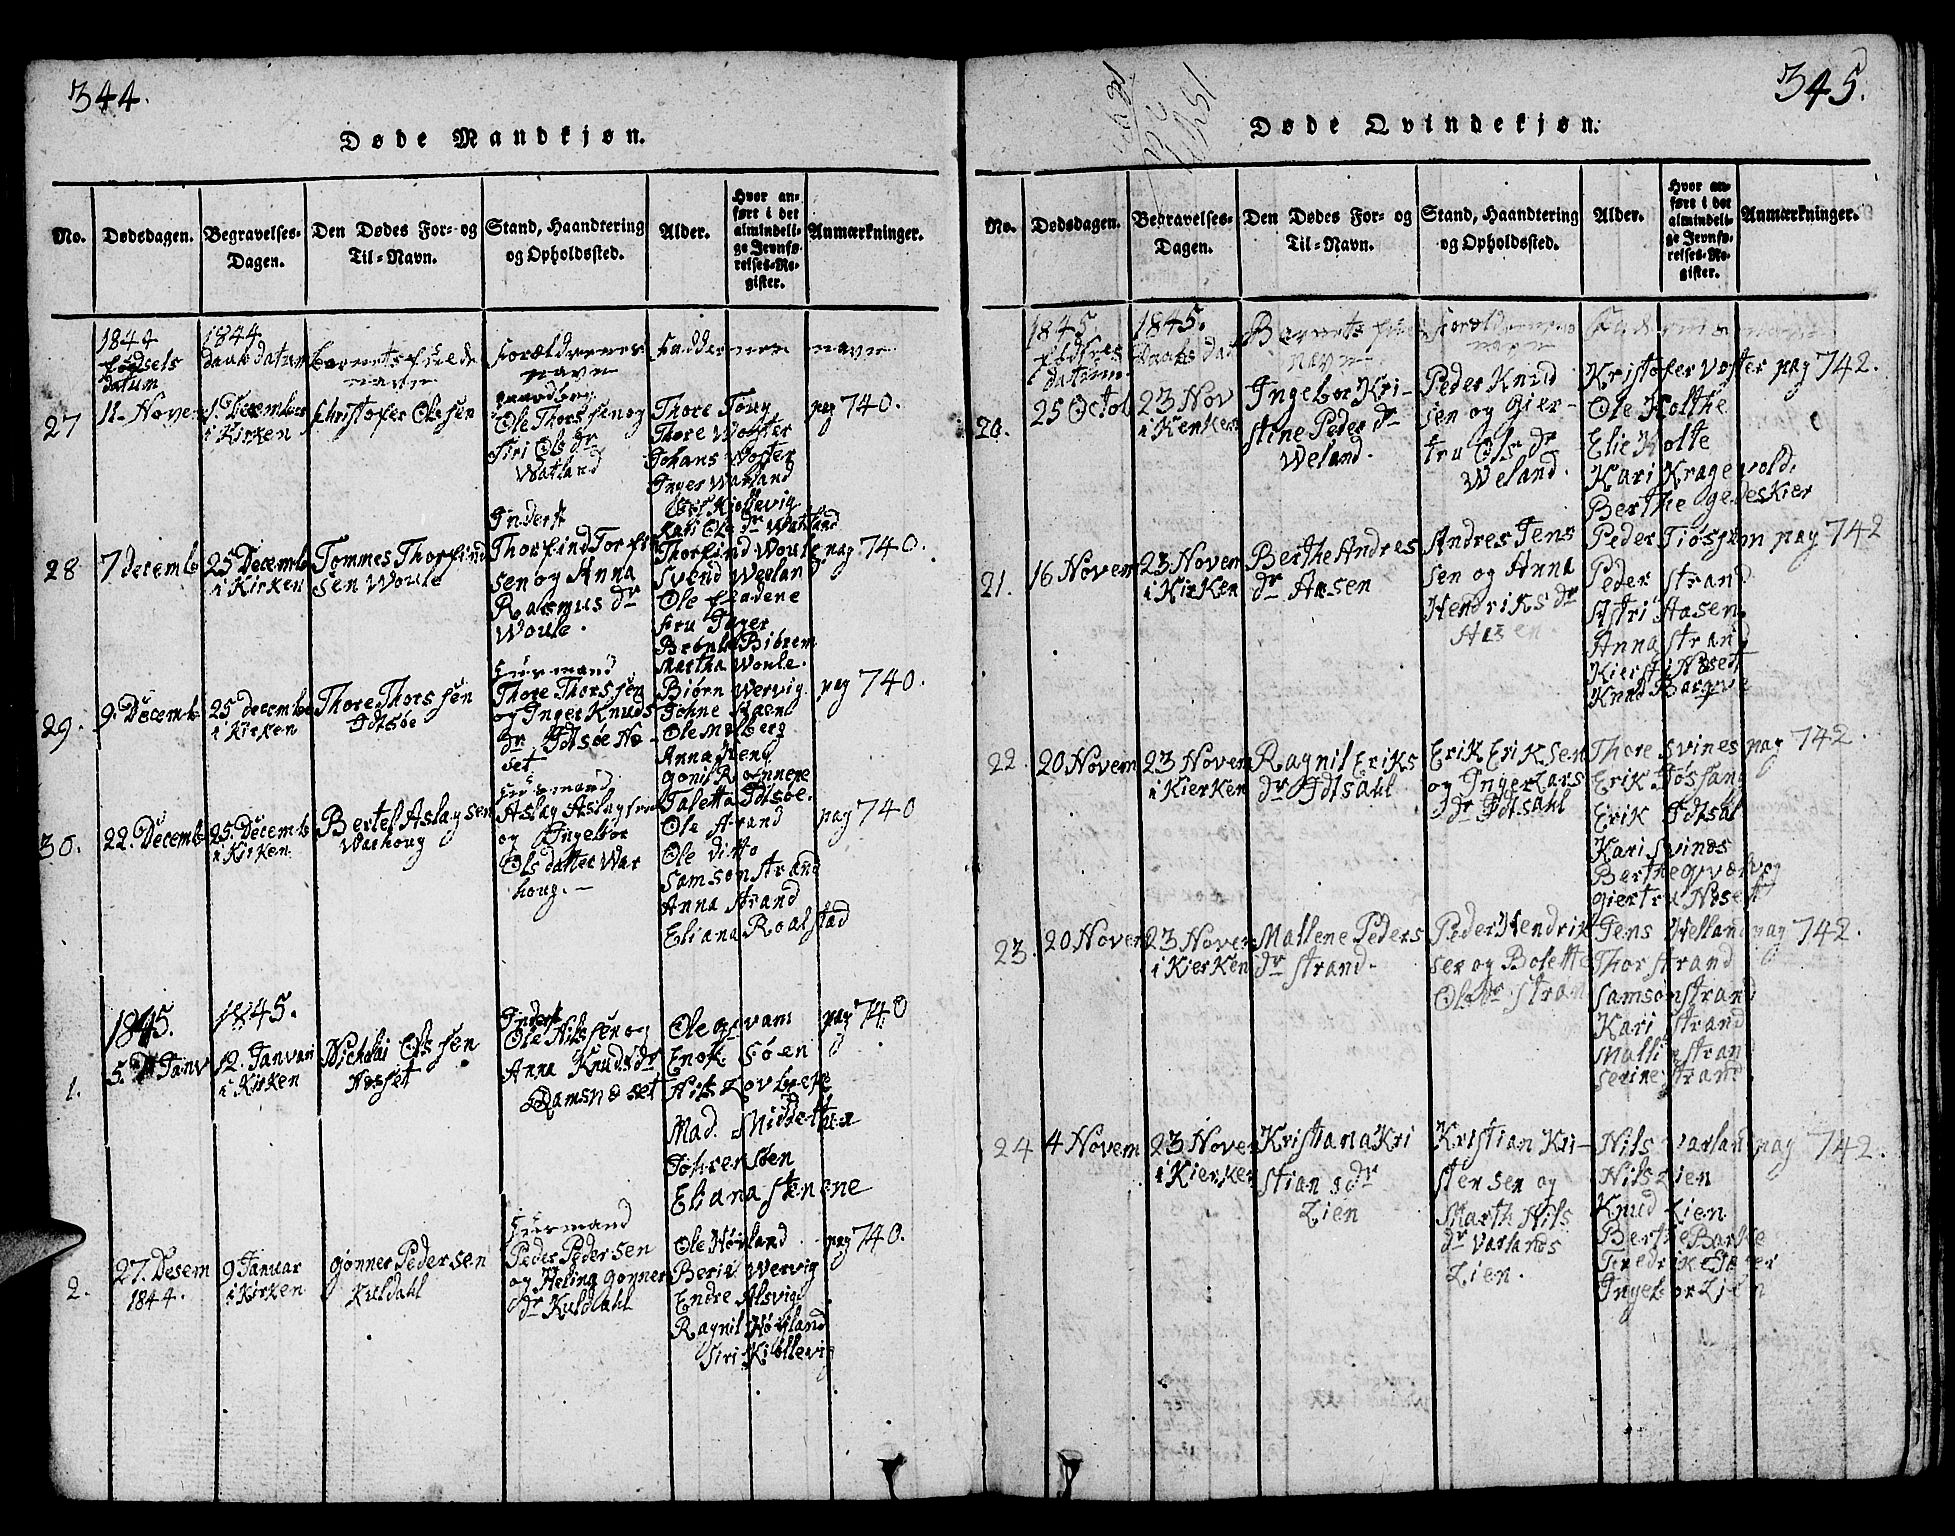 344.
Døde Mandkjøn.
No. Dødsdagen. Begravelses-Dagen. Den Dødes For- og Til-Navn. Stand, Haandtering og Opholdssted. Alder. Hvor anført i det almindelige Jevnførelses-Register. Anmærkninger.
1844 fødsels datum
1844 daabs datum
barnets fulde navn
forældrernes navn
faddernes navn
27
11- Novem
1. December i Kirken
Christofer Olssen
gaardbrg
Ole Thorssen og
Siri Ols dr
Watland
Thore Toug
Thore Woster
Johans Woster
Inger Watland
Kari Ole dr Watland
pag 740.
28
7 decemb
25 Decemb i Kirken
Tommes Thorfind
sen Woule
Inderst
Thorfind Torfin
sen og Anna
Rasmus dr
Woule.
Thorfind Woule
Svend Weslan
Ole fladene
fru Inger
Martha Woule.
pag 740.
29.
9. Decemb
25 decembe i Kirken
Thore Thorssen
Idtsøe
Huusmand
Thore Thorssen
og Inger Knuds
dr Idtsøe Nø-
set
Biørn Wervig
Johne Aasen
Ole Malberg
Anna Wieng
Gonil Rønnere
Taletta Idtsøe.
pag 740.
30.
22. Decemb
25. Decemb i Kirken
Bertel Aslagsen
Warhoug
Huusmand
Aslag Aslagsen
og Ingebor
Olsdatter War
houg. -
Ole Strand
Ole ditto
Samson Strand
Anna Strand
Eliana Roalstad
pag 740
1845.
1845.
1.
5. Janv
12. Januari i Kirken
Nicholai Olssen
Nøsset
Inderst
Ole Nilssen og
Anna Knudsdr
Ramsnøset
Ole Qvam
Enok Søen
Nils Lovbreke
Mad. Middelthun
Johren Søen
Eliana Stenene
pag 740
2.
27. Desem 1844.
9 Januar i Kirken
Gønner Pedersen
Kuldahl
Huusmand
Peder Pedersen
og Heling Gønner
dr Kuldahl
Ole Høyland
Berie Wervig
Endre Alsvig
Ragnil Høyland
Siri Kiøllevig
pag 740.
345.
Døde Qvindekjøn.
No. Dødsdagen. Begravelses-Dagen. Den Dødes For- og Til-Navn. Stand, Haandtering og Opholdssted. Alder. Hvor anført i det almindelige Jevnførelses-Register. Anmærkninger.
1845. fødsels datum
1845. Daabs dat
Barnets fulde navn
forældrernes navn
20.
25 Octob
23 Nov i Kirken
Ingebor Kri-
stine Peder dr
Weland.
Peder Knud
sen og Gier-
tru Ols dr
Weland.
Kristofer Voster
Ole Holthe
Elie Holte
Kari Kragevold.
Berthe Ogedeskier
pag 742.
21.
16 Novem
23 Novem i Kirken
Berthe Andres
dr Aasen
Andres Jens
sen og Anna
Hendriks dr
Aasen.
Peder Tiøstem
Peder Strand
Astri Aasen
Anna Strand
Kiersti Nøset
Knud Bargeve
pag 742
22.
20 Novem
23 Novem i Kierken
Ragnil Eriks
dr Idtsahl
Erik Eriksen
og Inger Lars
dr Idtsahl
Thore Svines
Erik Jøssang
Erik Idtsal
Kari Svines
Giertru Nøset
pag 742.
23.
20 Novem
23 Novem i Kierken
Mallene Peders
dr Strand-
Peder Hendrik
sen og Bolette
Ols dr Strand
Jens Welland
Thor Strand
Samson Strand
Kari Strand
Malli Strand
Serine Strand
pag 742.
24
4 Novem
23 Novem i Kierken
Kristiana Kri
stians dr
Lien
Kristian Kri-
stensen og
Marth Nils
dr Varlands
Lien.
Nils Varland
Nils Lien
Knud Lien
Berthe Barke
Ingebor Lien
pag 742.